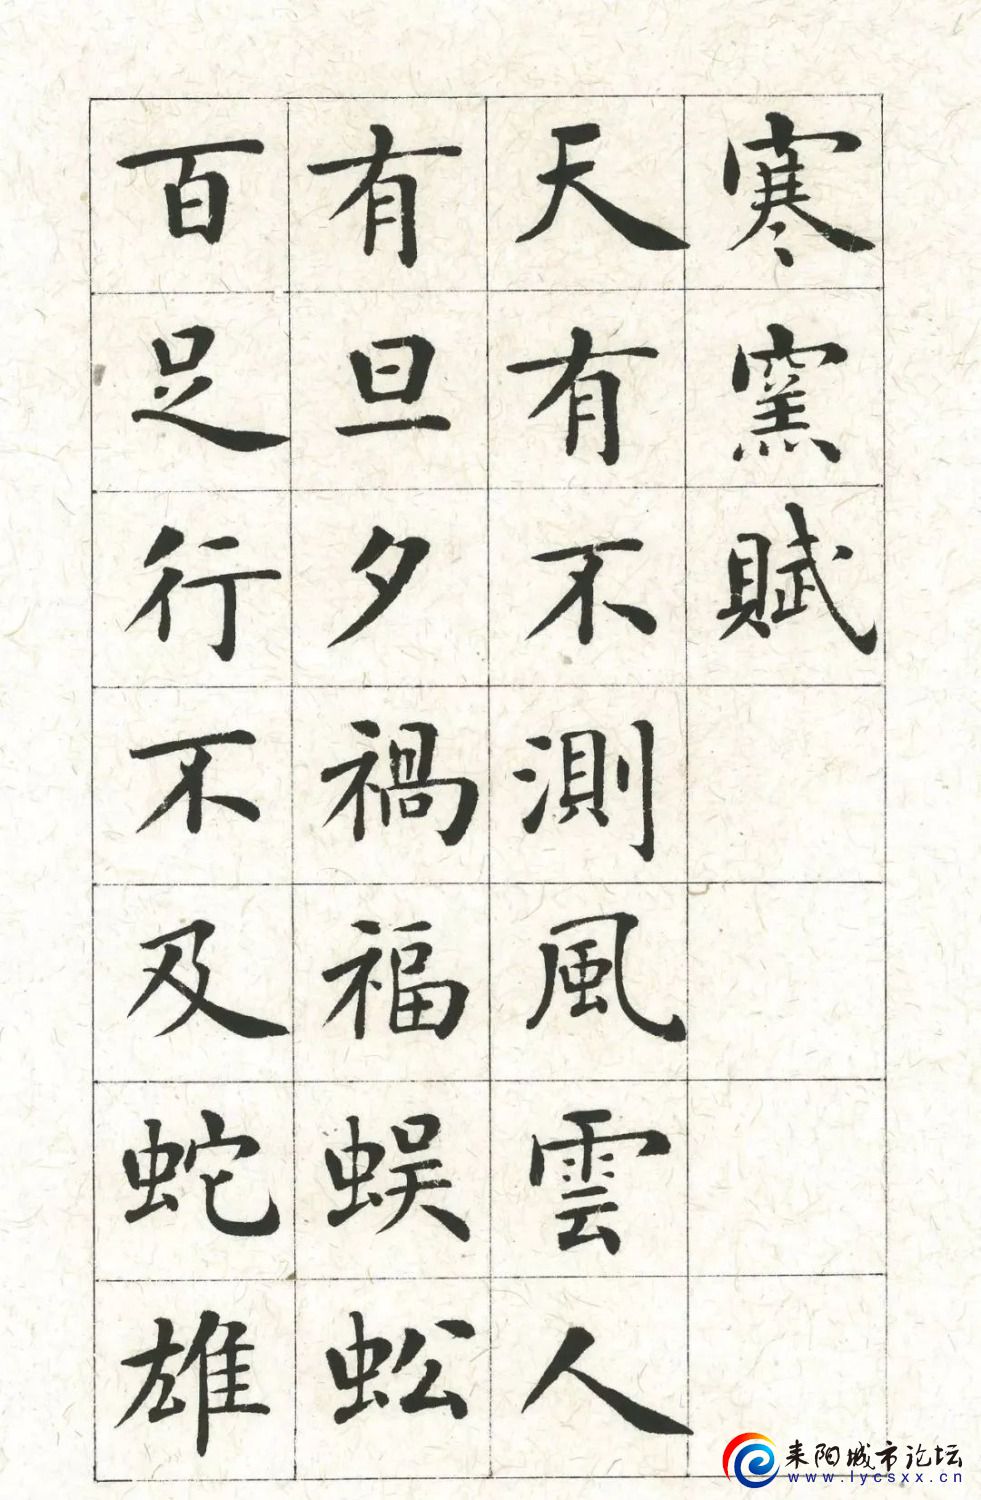 寒窯賦
天有不測風雲人
有旦夕禍福蜈蚣
百足行不及蛇雄
耒阳城市论坛
www.lycsxx.cn